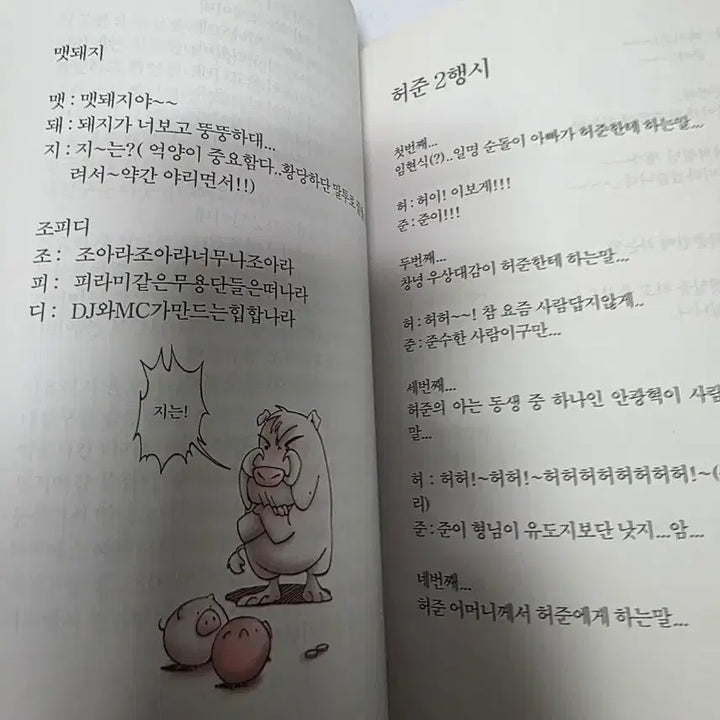 멧돼지
멧 : 멧돼지야~~
돼 : 돼지가 너보고 뚱뚱하대...
지 : 지~는?( 억양이 중요함다..황당하단 말투로
려서~약간 야리면서!!)
조피디
조 : 조아라조아라너무나조아라
피 : 피라미같은무용단들은떠나라
디 : DJ와MC가만드는힙합나라
지는!
허준 2행시
첫번째...
임현식(?)..일명 순돌이 아빠가 허준한테 하는말...
허 : 허이! 이보게!!!
준 : 준이!!!
두번째...
창녕 우상대감이 허준한테 하는말...
허 : 허허~~! 참 요즘 사람답지않게..
준 : 준수한 사람이구만...
세번째...
허준의 아는 동생 중 하나인 안광혁이 사람
말...
허 : 허허!~허허!~허허허허허허허허!~(
리)
준 : 준이 형님이 유도지보단 낫지...암...
네번째...
허준 어머니께서 허준에게 하는말...